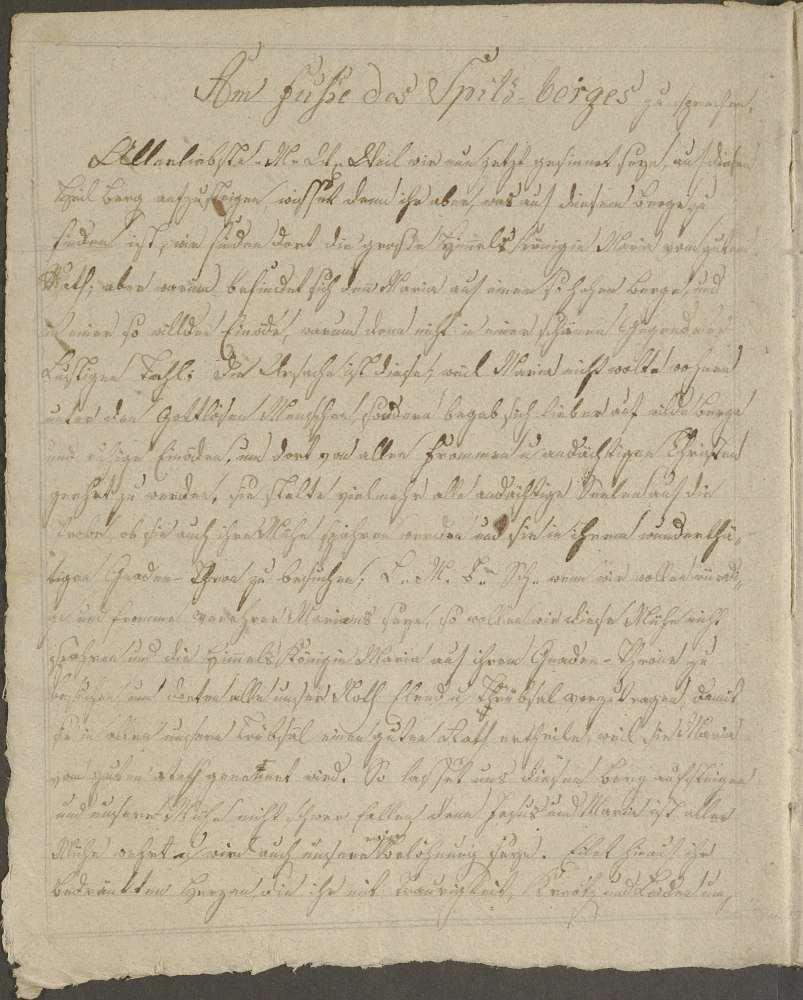 Am Fuße des Spitz-berges zu sprechen.
Allerliebste M. Ch. Weil wir nun jetzt gesinnet seyn, auf diesen
Theil Berg aufzusteigen, wisset denn ihr aber, was auf diesem Berge zu
finden ist, wir finden dort die große Himmels Königin Maria vom guten
Rath; aber warum befindet sich denn Maria auf einen so hohen Berge, und
in einer so willden Einöde, warum denn nicht in einer schönen Gegend oder
Lustigen Tahl; Die Ursache ist diese, weil Maria nicht wollte wohnen
unter den Gottlosen Menschen, sondern begab sich lieber auf wilde Berge
und ruhige Einöden, um dort von allen Frommen u andächtigen Christen
geehrt zu werden, sie stelte vielmehr alle andächtige Seelen auf die
Probe, ob sie auch ihre Mühe spahren werden und sie in ihrem wunderthä-
tigen Gnaden-Thron zu besuchen; L. M. wenn wir wollen würdi-
ge und fromme verehrer Mariens seyn, so wollen wir diese Mühe nicht
spahren und die Himmels Königin Maria auf ihrem Gnaden-Throne zu
besuchen um dorten alle unser Noth Elend u Trübsal vorzutragen, damit
sie in allen unsern Trübsal einen guten Rath ertheile, weil sie Maria
vom guten Rath genennet wird. So lasset uns diesen Berg aufsteigen
und unsere Mühe nicht schwer fallen denn Jesus und Maria ist aller
Mühe wehrt u wird auch unsere Belöhnung seyn. Eilet hinauf ihr
bedrängten Herzen, die ihr mit Traurigkeit, Kreütz und Leiden um-